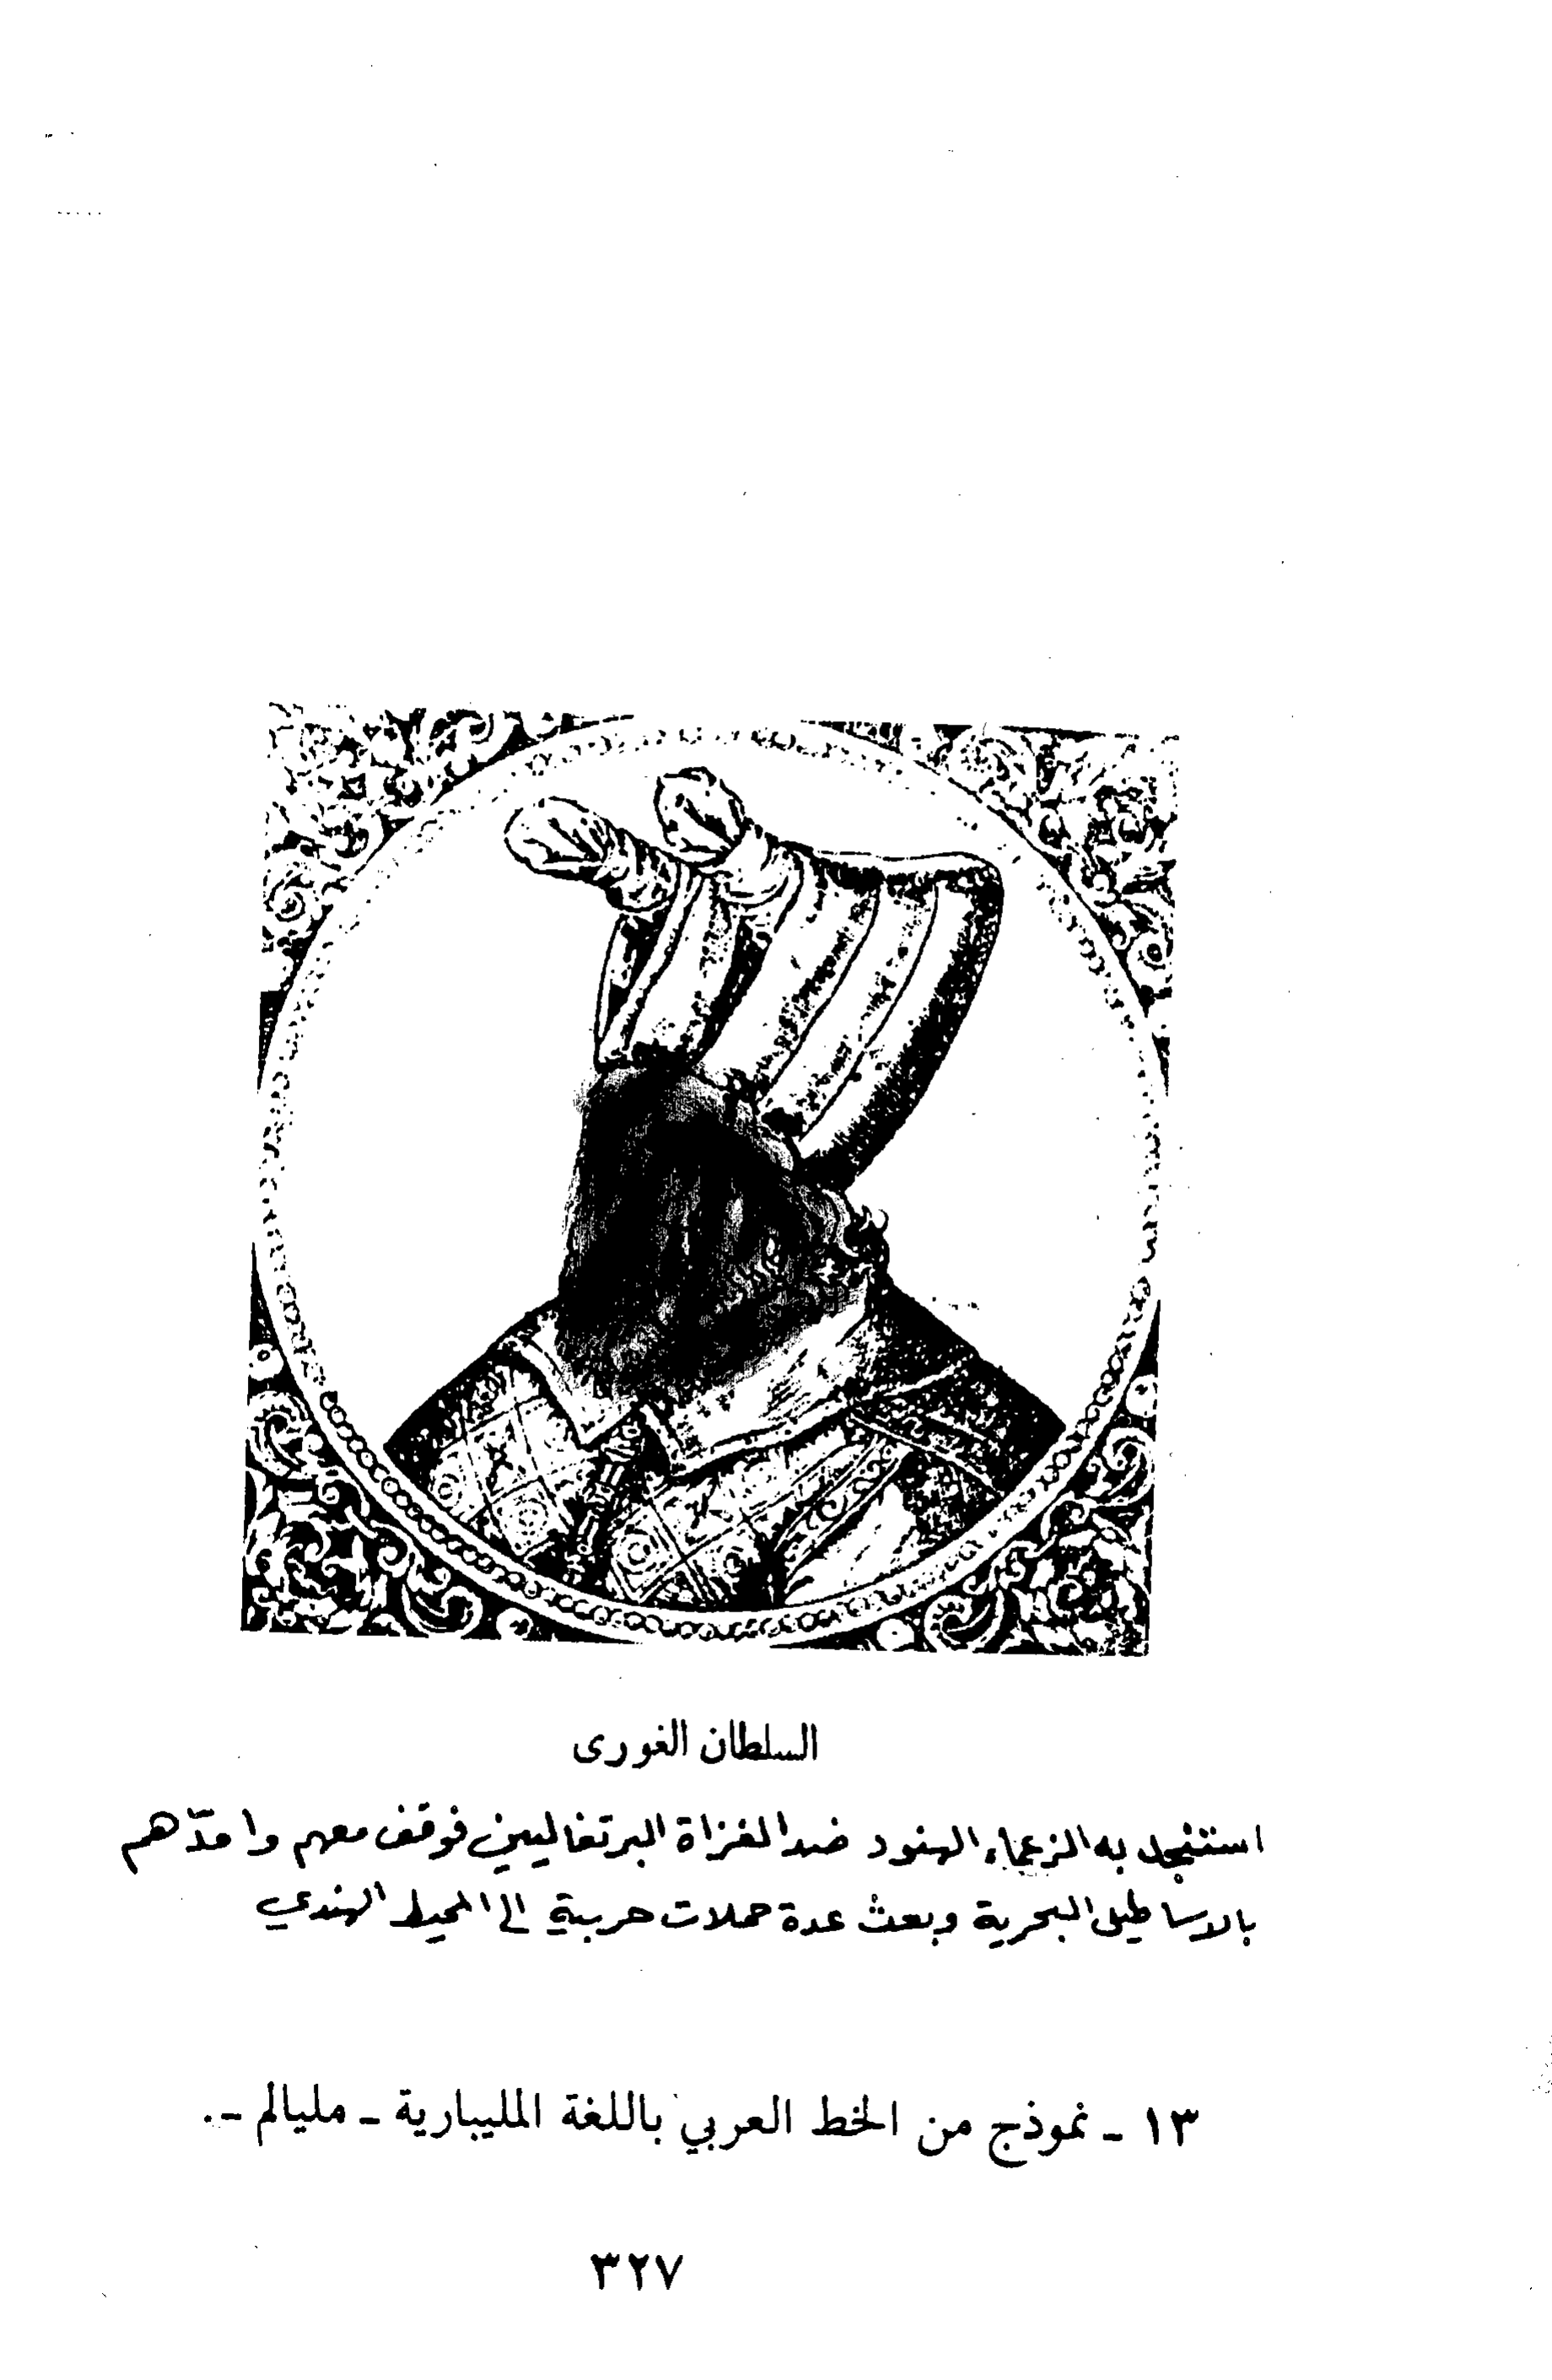 السلطان الغورى
استنجد به الزعماء الهنود ضد الغزاة البرتغاليين فوقف معهم وامدّهم
بالاساطيل البحرية وبعث عدة حملات حربية الى المحيط الهندي
١٣ - نموذج من الخط العربي باللغة المليبارية - مليالم -.
٣٢٧